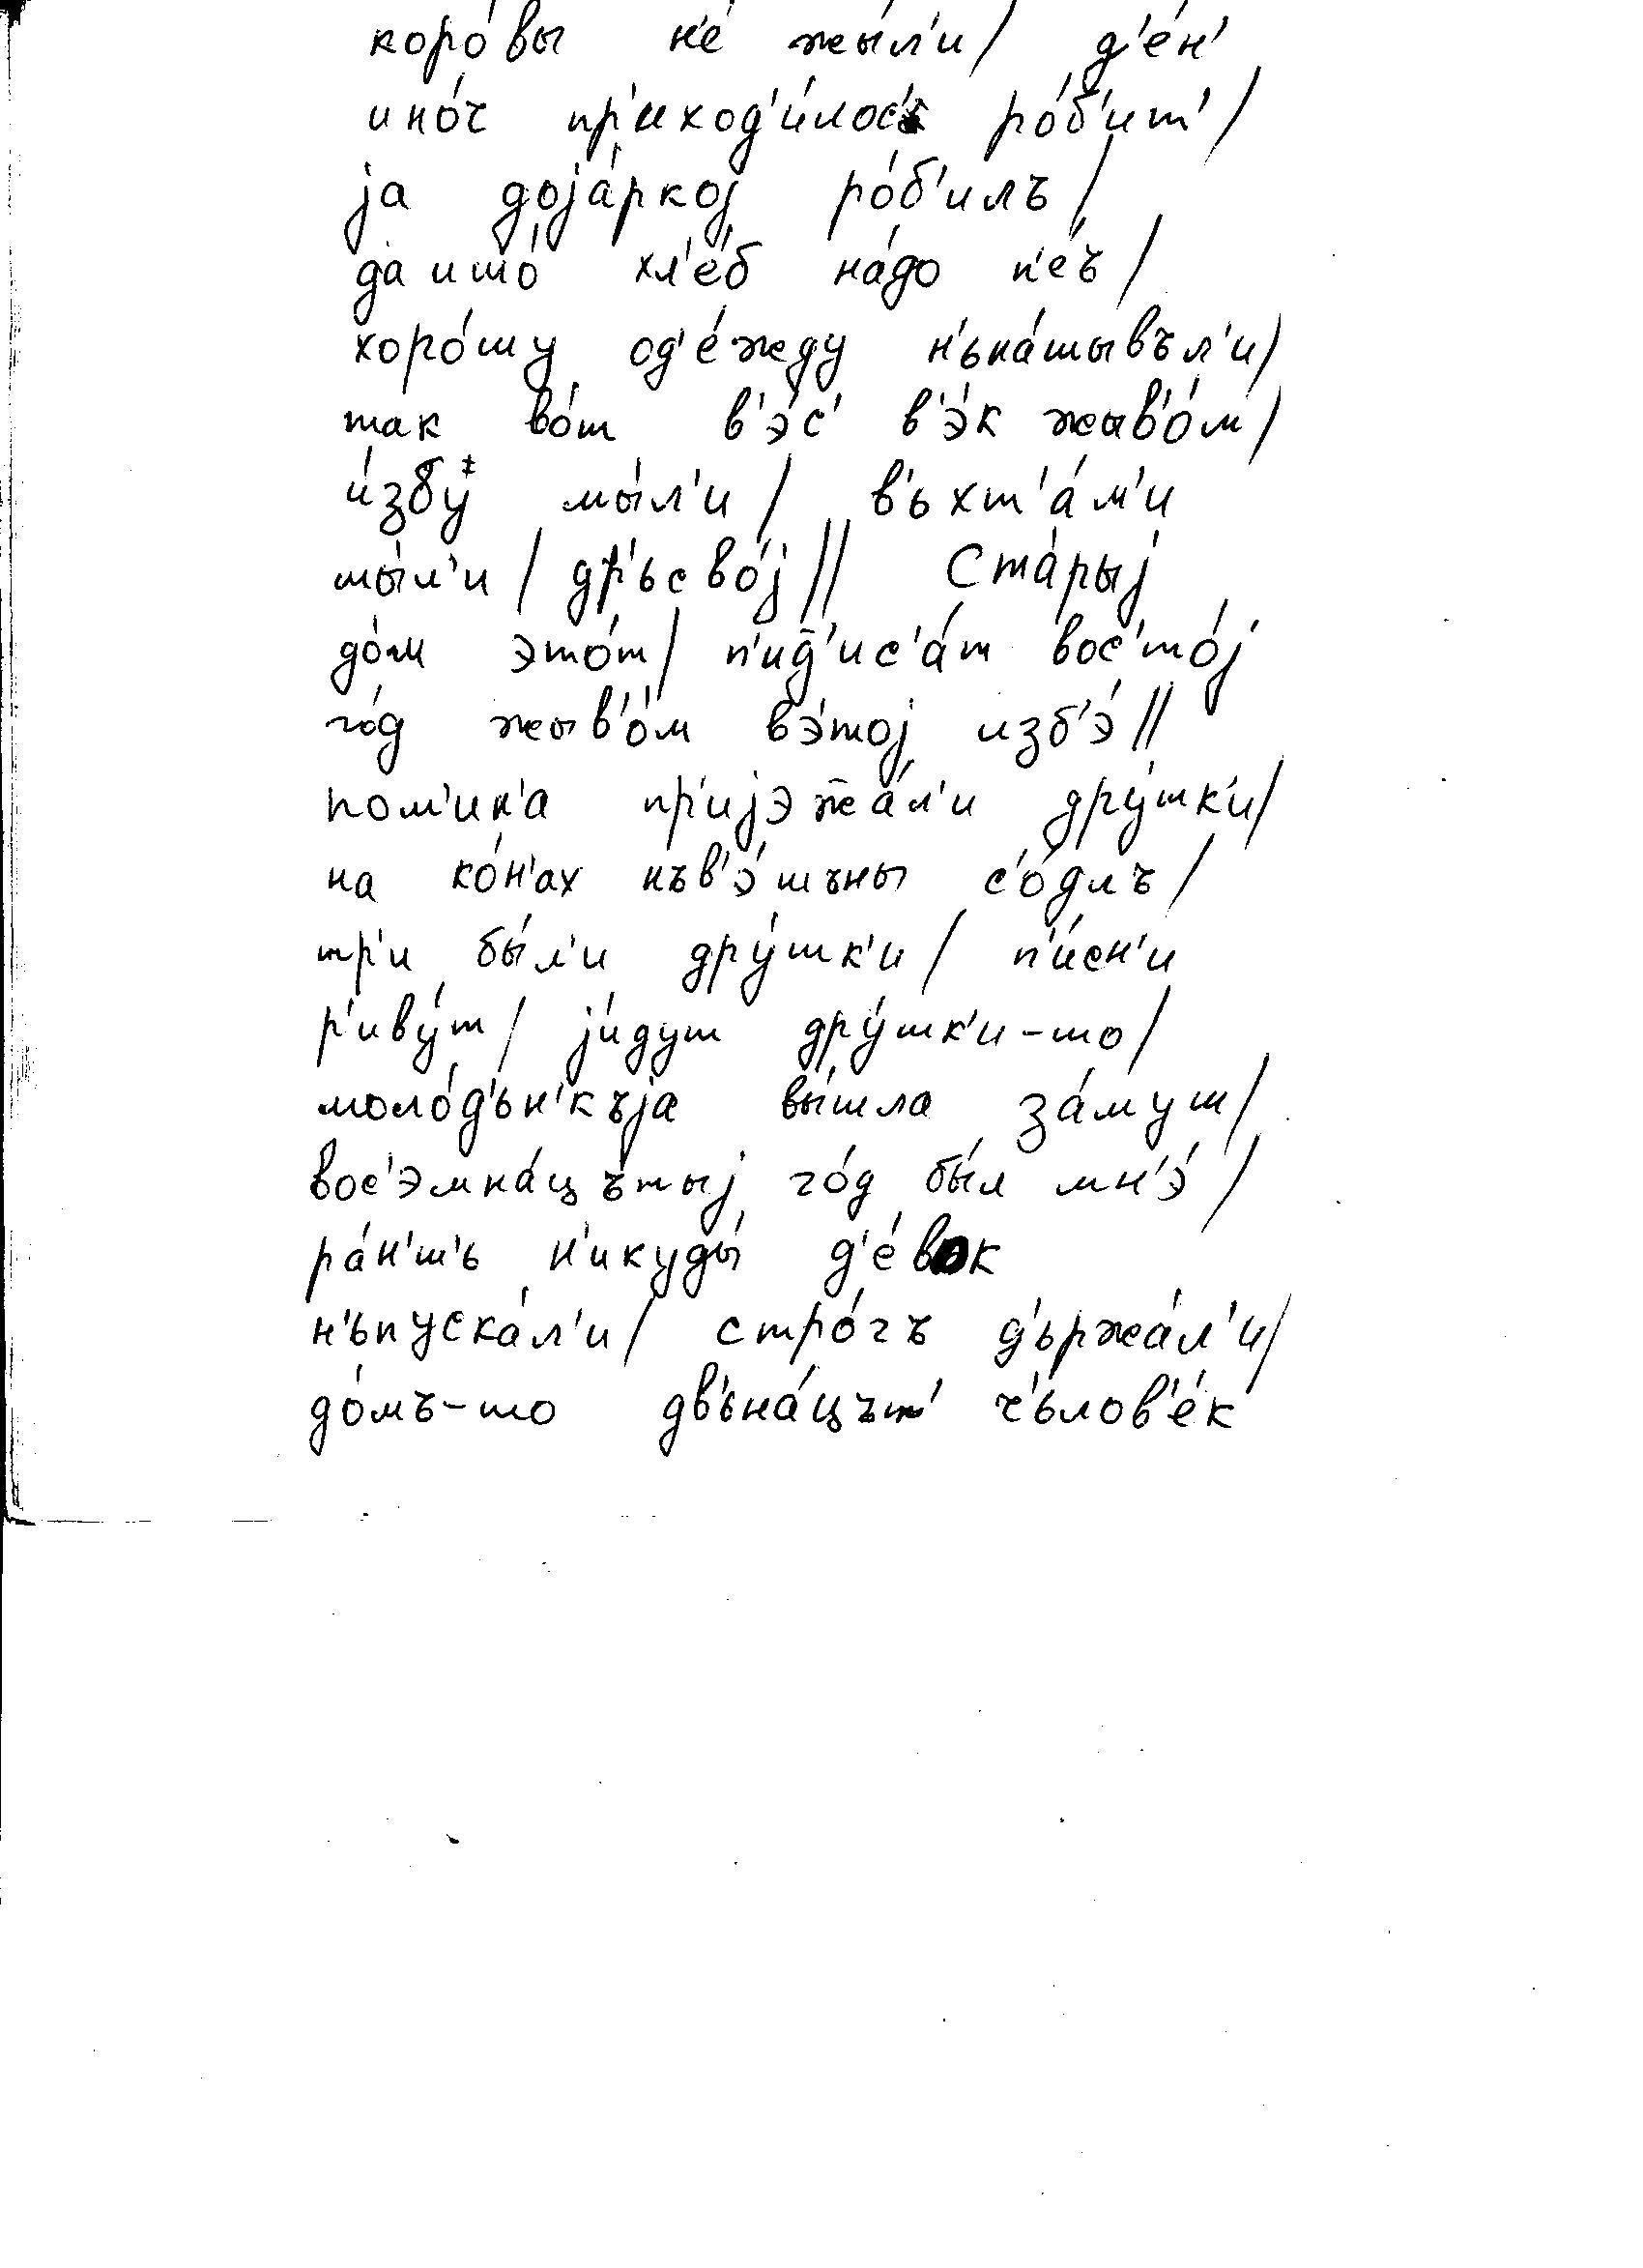 коро́вы н'е́ жы́л'и/ д'е́н'
ино́ч пр'иход'и́лос' ро́б'ит'/
jа доjа́ркоj ро́б'илъ/
да ишо́ хл'е́б на́до п'е́ч/
хоро́шу од'е́жду н'ьна́шывъл'и/
так во́т в'э́с' в'э́к жыв'о́м/
и́збу мы́л'и/ в'ьхт'а́м'и
мы́л'и/ др'ьсво́j// Ста́рыj
до́м это́т/ п'ид̄'ис'а́т вос'то́j
го́д жыв'о́м вэ́тоj изб'э́//
пом'ин'а пр'иjэж̄а́л'и дру́шк'и/
на ко́н'ах нъв'э́шъны с'о́длъ/
тр'и бы́л'и дру́шк'и/ п'и́сн'и
р'иву́т/ jи́дут дру́шк'и-то/
моло́д'ьн'къjа вы́шла за́муш/
вос'эмна́цътыj го́д бы́л мн'э́/
ра́н'ш'ь н'икуды́ д'е́вок
н'ьпуска́л'и/ стро́гъ д'ьржа́л'и/
до́мъ-то дв'ьна́цът' ч'ьлов'е́к